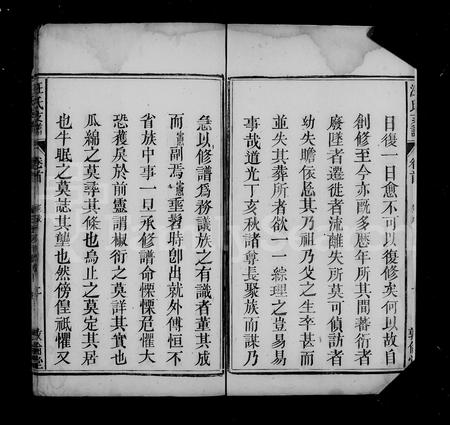 日復一日愈不可以復修矣何以故自
創修至今亦既多歷年所其間蕃衍者
廢墜者遷徙者流離失所莫可偵訪者
幼失瞻依忘其乃祖乃父之生卒甚而
並失其葬所者欲一一綜理之豈易易
事哉道光丁亥秋諸尊長聚族而謀乃
急以修譜為務議族之有識者董其成
而副焉垂髫時卽出就外傅恒不
省族中事一旦承修譜命慄慄危懼大
恐獲戾於前靈謂椒衍之莫詳其實也
瓜綿之莫尋其條也烏止之莫定其居
也牛眠之莫誌其壟也然傍偟祇懼又
汪氏支譜
卷首
敦倫堂